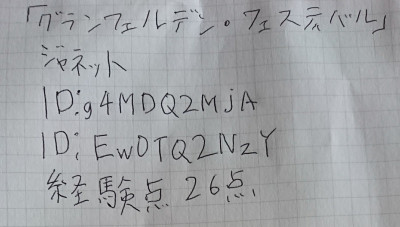 「グランフェルデン・フェスティバル」
ジャネット
ID:g4MDQ2MjA
ID:EwOTQ2NzY
経験点 26点